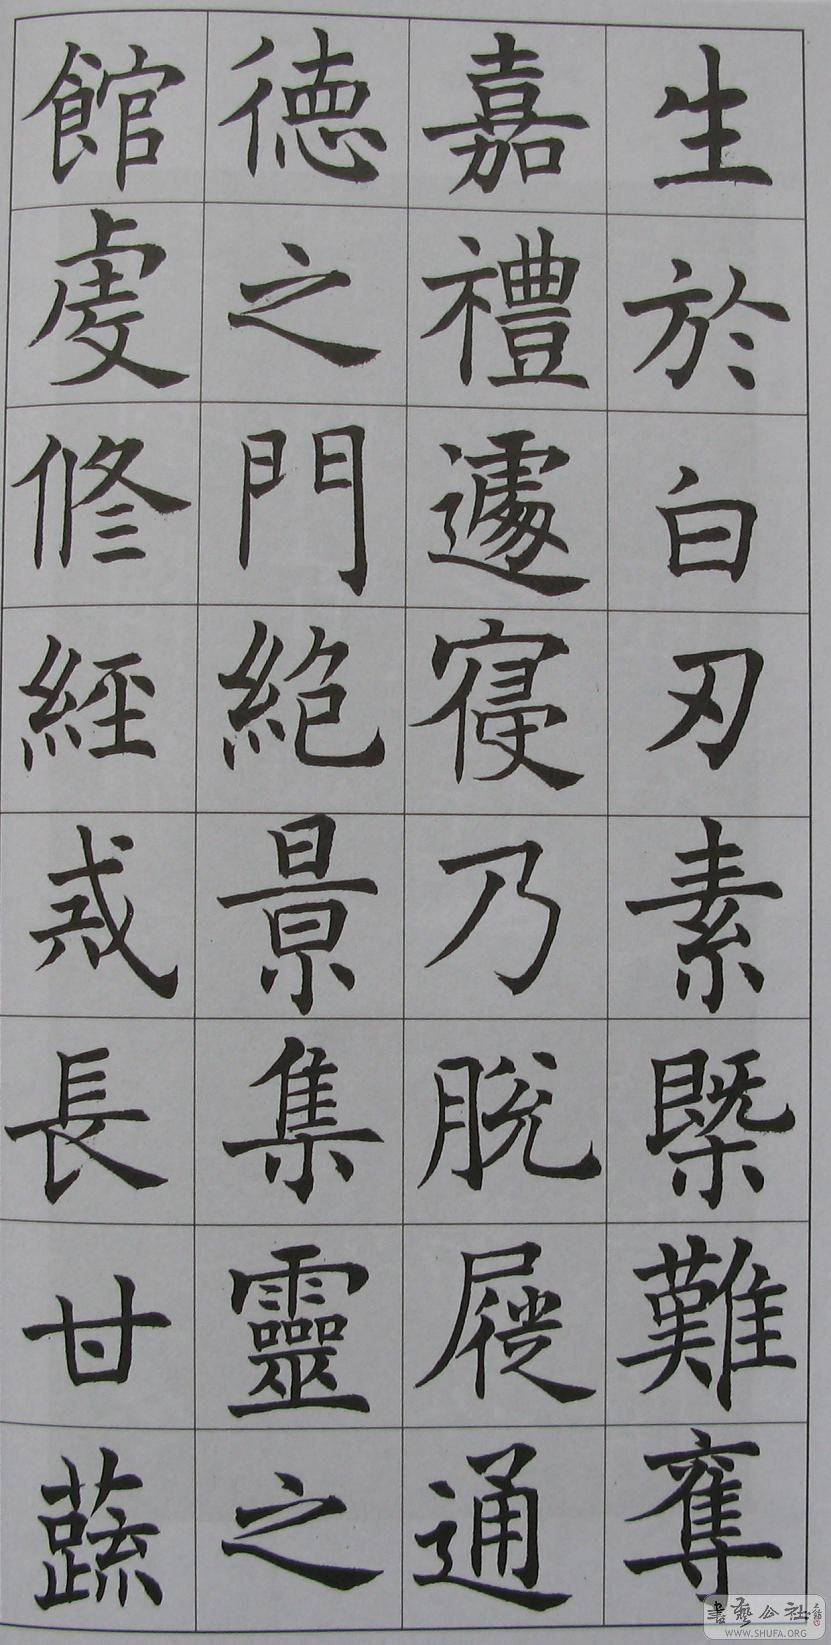 生於白刃素槩難奪
嘉禮遽寑乃脫屣通
德之門絕景集靈之
館虔修經戒長甘蔬
書藝公社
WWW.SHUFA.ORG